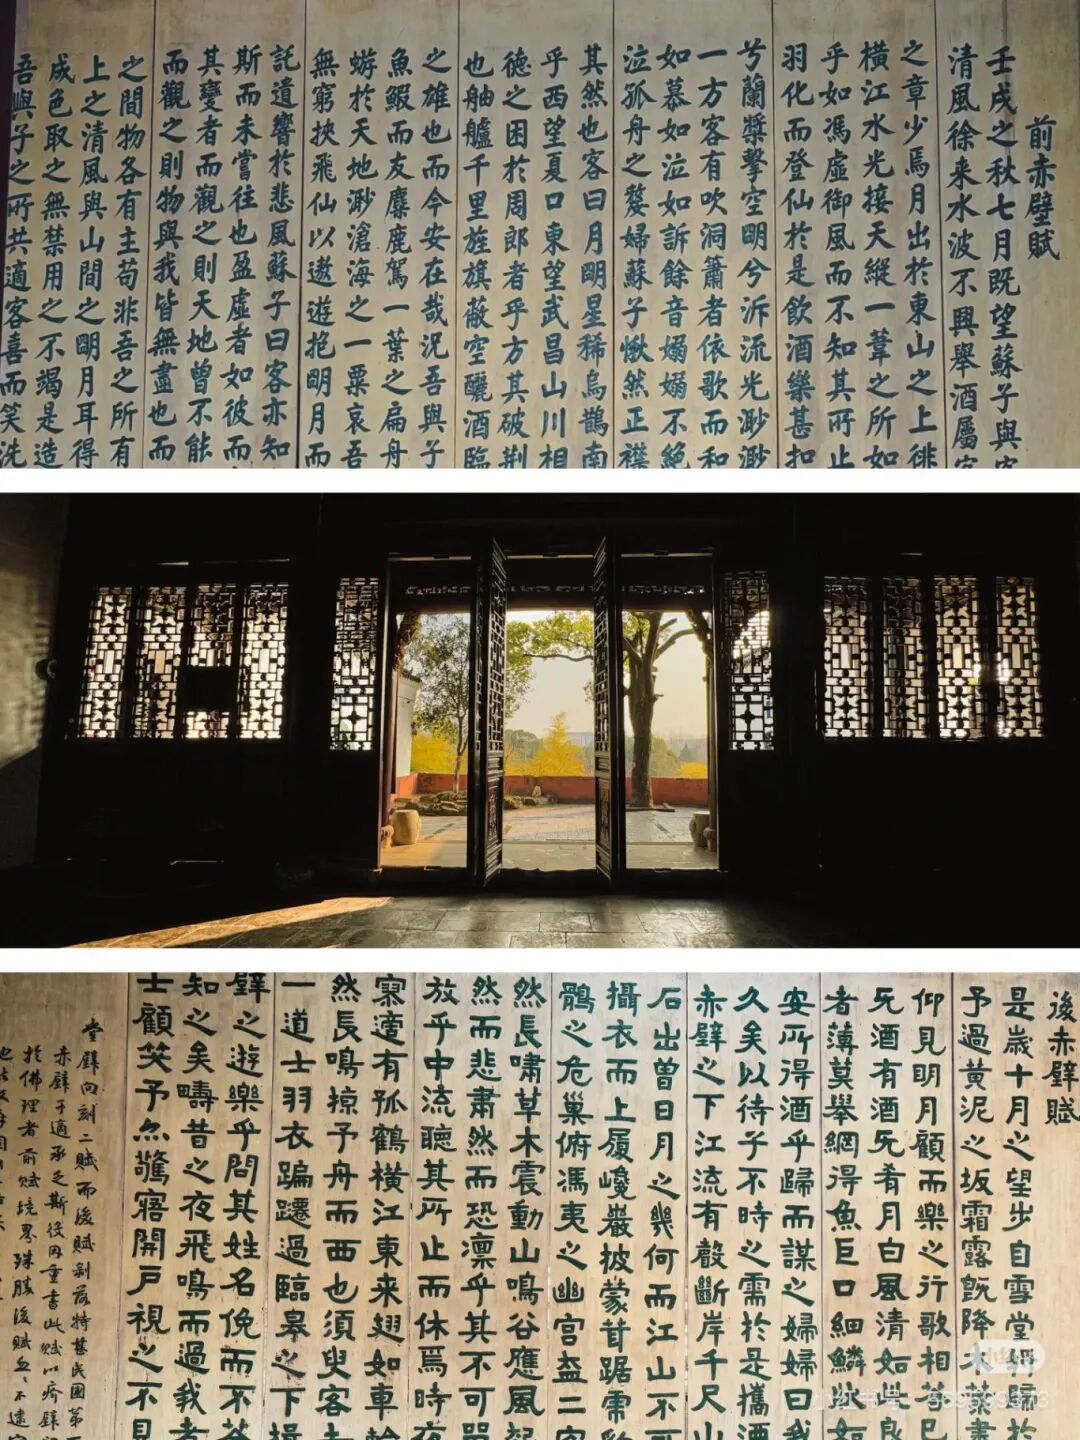 前赤壁賦
壬戌之秋七月既望蘇子與客
清風徐来水波不興舉酒屬客
之章少焉月出於東山之上徘
橫江水光接天縱一葦之所如
乎如馮虛御風而不知其所止
羽化而登仙於是飲酒樂甚扣
兮蘭槳擊空明兮泝流光渺渺
一方客有吹洞簫者依歌而和
如慕如泣如訴餘音嫋嫋不絕
泣孤舟之嫠婦蘇子愀然正襟
其然也客曰月明星稀烏鵲南
乎西望夏口東望武昌山川相
德之困於周郎者乎方其破荆
也舳艫千里旌旗蔽空釃酒臨
之雄也而今安在哉況吾與子
魚鰕而友麋鹿駕一葉之扁舟
蜉於天地渺滄海之一粟哀吾
無窮挾飛仙以遨遊抱明月而
託遺響於悲風蘇子曰客亦知
斯而未嘗往也盈虛者如彼而
其變者而觀之則天地曾不能
而觀之則物與我皆無盡也而
之間物各有主苟非吾之所有
上之清風與山間之明月耳得
成色取之無禁用之不竭是造
吾與子之所共適客喜而笑洗
後赤壁賦
是歲十月之望步自雪堂將歸於
予過黃泥之坂霜露既降木葉盡
仰見明月顧而樂之行歌相答已
旡酒有酒旡肴月白風清如此良
者薄莫舉網得魚巨口細鱗狀如
安所得酒乎歸而謀之婦婦曰我
久矣以待子不時之需於是攜酒
赤壁之下江流有聲斷岸千尺山
石出曾日月之幾何而江山不可
攝衣而上履巉巖披蒙茸踞虎豹
鶻之危巢俯馮夷之幽宮盖二客
然長嘯草木震動山鳴谷應風起
然而悲肅然而恐凜乎其不可留
放乎中流聽其所止而休焉時夜
寂適有孤鶴橫江東来翅如車輪
然長鳴掠予舟而西也須臾客去
一道士羽衣蹁躚過臨皋之下揖
壁之遊樂乎問其姓名俛而不答
知之矣疇昔之夜飛鳴而過我者
士顧笑予亦驚寤開戶視之不見
堂壁向刻二賦而後賦剥落特甚民國第
赤壁予適承乏斯役因重書此賦以
於佛理者前賦境界殊勝後賦不逮
小红书号: